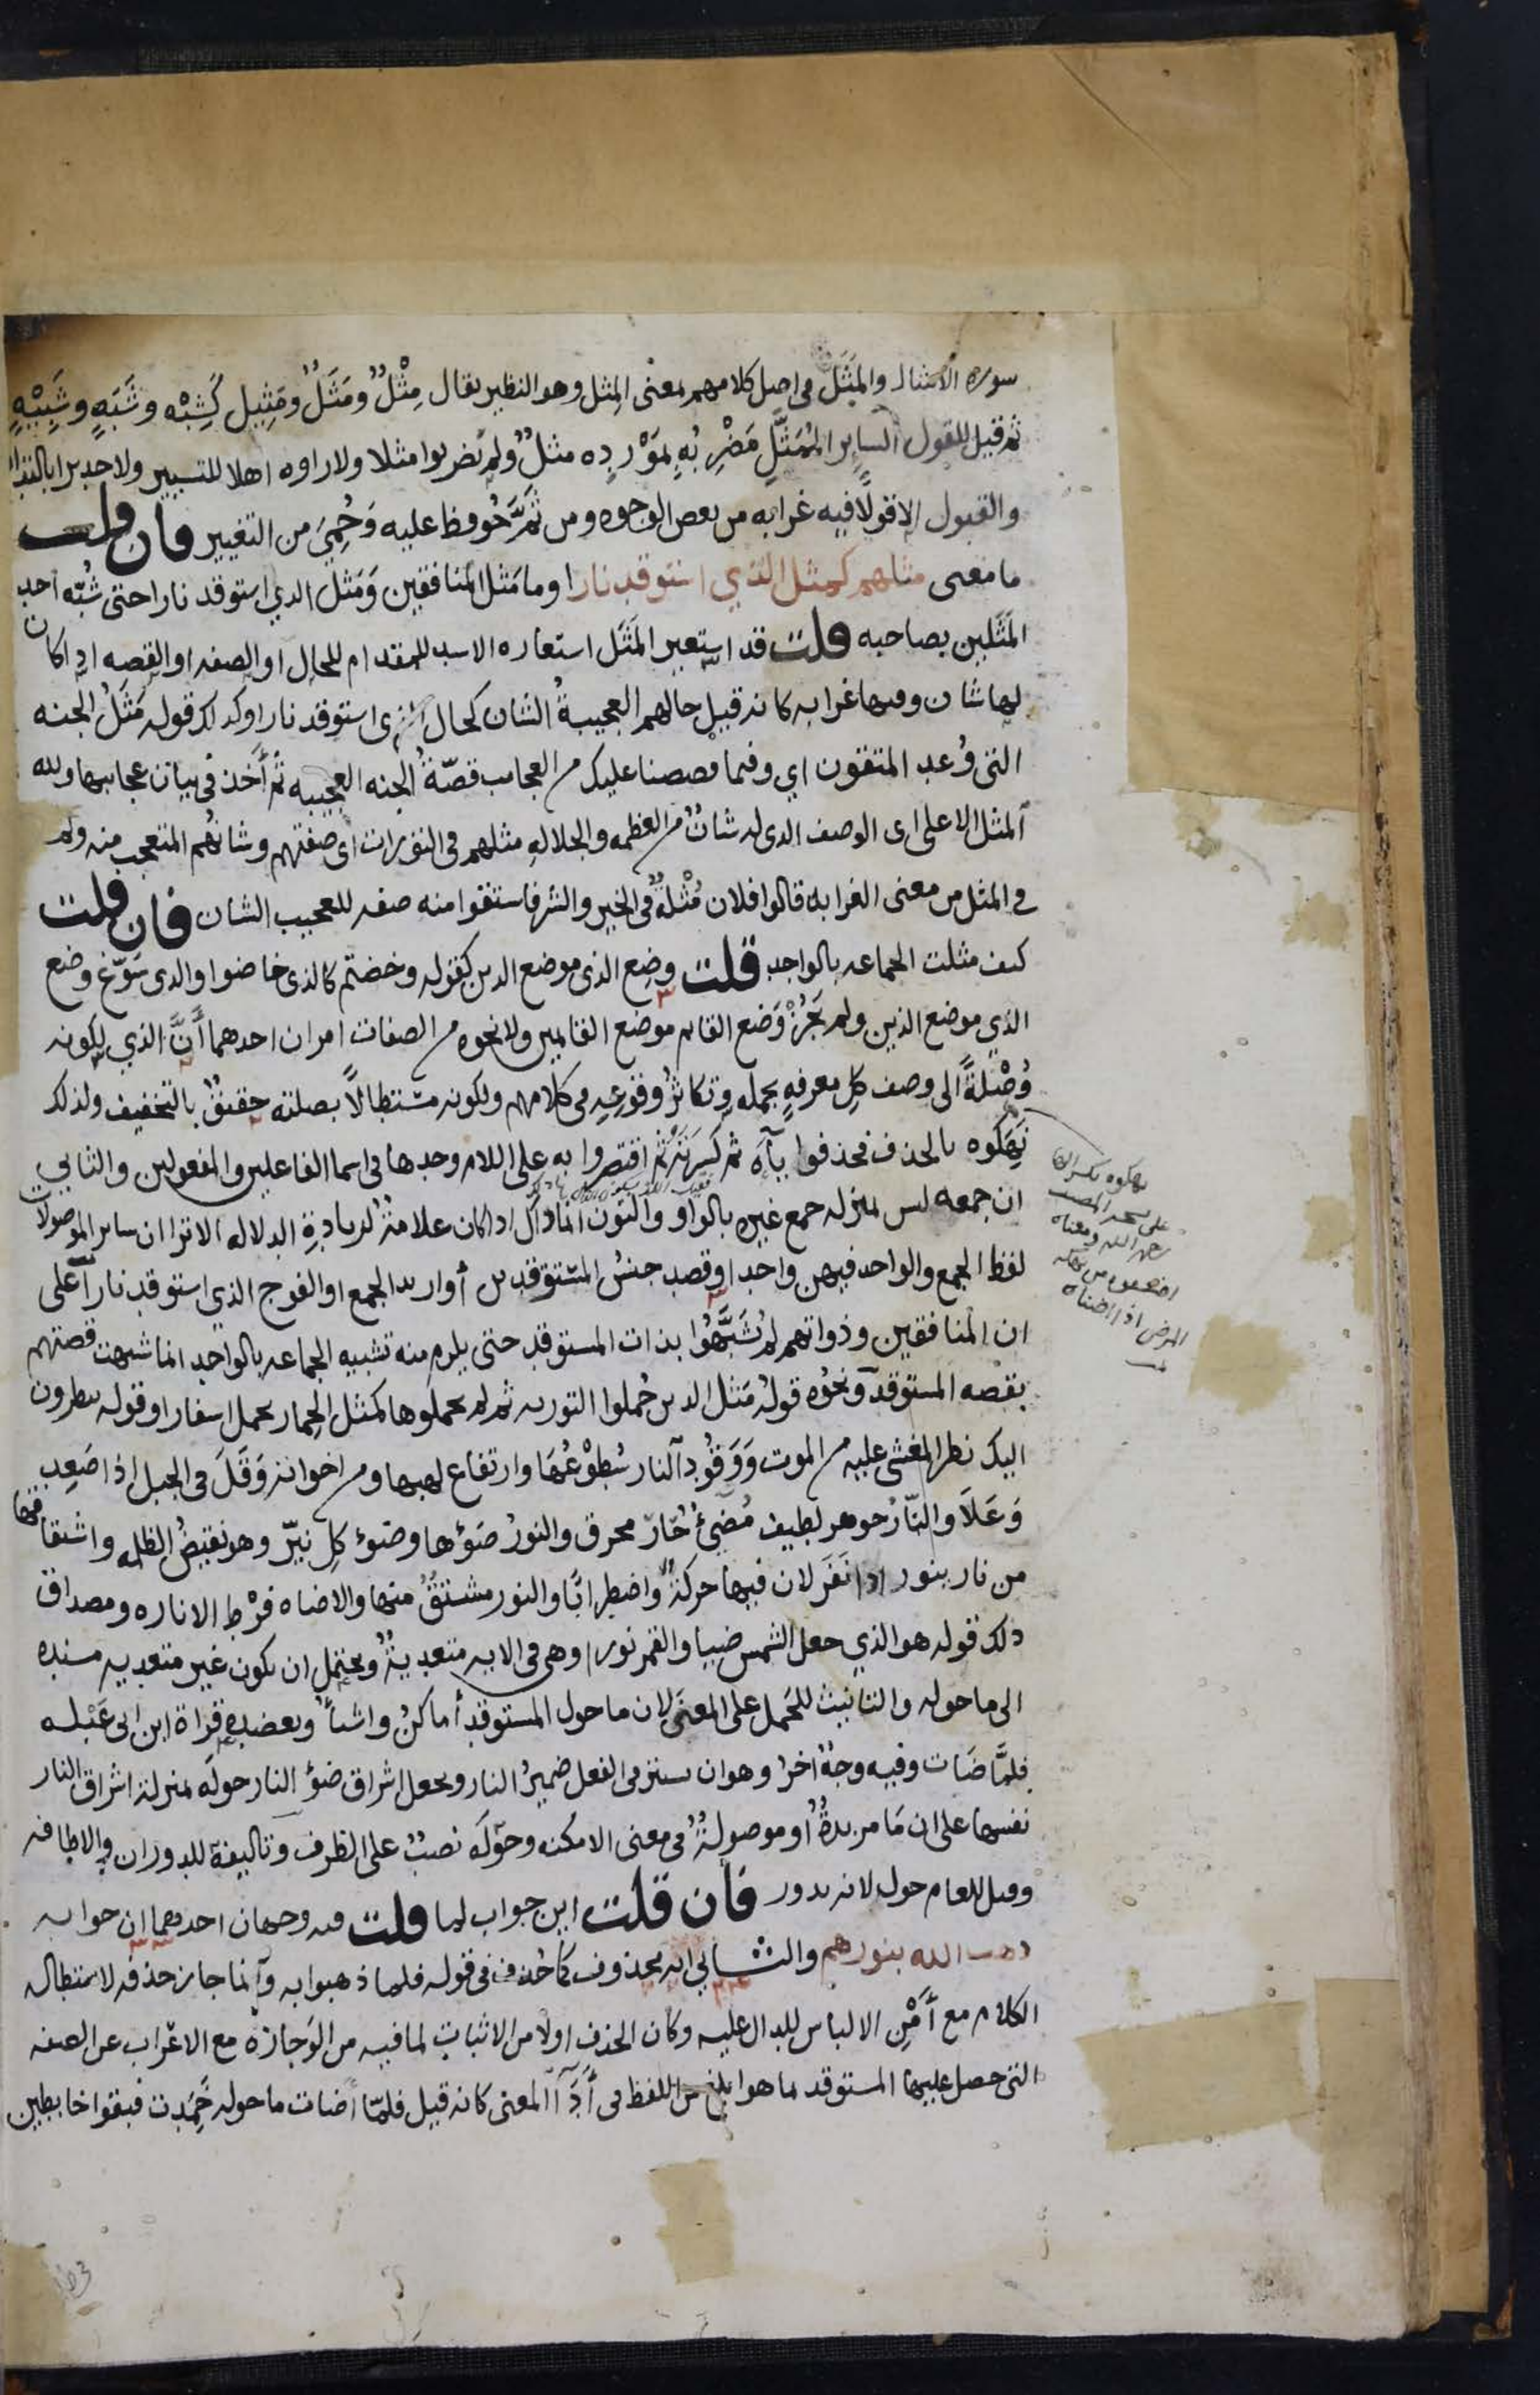 سوره الامثال والمَثَل في اصل كلامهم بمعنى المِثل وهو النظير يقال مِثْلٌ ومَثَلٌ ومَثِيل كَشِبْه وشَبَهٍ وشَبِيْهٍ
ثم قيل للقول الساير المُمَثَّلِ مَضْرِبُهِ بمَوْرِدِه مثلٌ ولم يَضربوا مثلا ولا راوه اهلا للتسيير ولا جديرا بالتداول
والقبول الا قولاً فيه غرابه من بعض الوجوه ومن ثَمَّ حُوفظ عليه وَحُمِيَ من التغيير فان قلت
ما معنى مثلهم كمثل الذي استوقد نارا وما مَثل المنافقين وَمَثل الذي استوقد نارا حتى شُبّه احد
المَثَلين بصاحبه قلت قد استعير المَثَل استعاره الاسد للمقدام للحال او الصفه او القصه اذا كان
لها شان وفيها غرابه كانه قيل حالهم العجيبةُ الشان كحال الذي استوقد نارا وكذلك قوله مَثَلُ الجنه
التي وُعد المتقون اي وفيما قصصنا عليك من العجايب قصّةُ الجنه العجيبه ثم أَخَذ في بيان عجايبها ولله
المثل الاعلى اي الوصف الذي له شانٌ من العظمه والجلاله مثلهم في التورات اي صفتهم وشانهُم المتعجب منه ولما
في المثل من معنى الغرابه قالوا فلان مُثْلَةٌ في الخير والشر فاشتقوا منه صفه للعجيب الشان فان قلت
كيف مثلت الجماعه بالواحد قلت وضِع الذي موضع الذين كقوله وخضتم كالذي خاضوا والذي سَوّغ وضع
الذي موضع الذين ولم يَجُزْ وَضع القايم موضع القايمين ولا نحوه من الصفات امران احدهما أَنَّ الذي لكونه
وُصْلةً الى وصف كلِ معرفهٍ بجمله وتكاثرُ وقوعِهِ في كلامهم ولكونه مستطالاً بصلته حقيقٌ بالتخفيف ولذلك
نَهِكوه بالحذف فحذفوا يآءَه ثم كسرته ثم اقتصروا به على اللام وحدها في اسما الفاعلين والمفعولين والثاني
ان جمعه ليس بمنزله جمع غيره بالواو والنون انما ذاك اذا كان علامةٌ لزيادةِ الدلاله الا ترا ان ساير الموصولات
لفظ الجمع والواحد فيهن واحد او قصد جنسُ المستوقدين أو اريد الجمع او الفوج الذي استوقد نارا على
ان المنافقين وذواتهم لم يُشَبَّهُوا بذات المستوقد حتى يلزم منه تشبيه الجماعه بالواحد انما شبهت قصتهم
بقصه المستوقد ونحوُه قولُه مَثل الذين حُملوا التوريه ثم لم يحملوها كمثل الحِمار يحمل اسفارا وقوله ينظرون
اليك نظر المغشى عليه من الموت وَوَقُودِ النار سُطوْعُهَا وارتفاع لهبها ومن اخواته وَقَلَ في الجبل اذا صَعِد
وَعَلَا والنّارُ جوهر لطيف مُضِيءٌ حَّارّ محرق والنورُ ضوُها وضوْء كلِ نيّرٍ وهو نقيضُ الظلمه واشتقاقها
من نار ينور اذا نَفَر لان فيها حركةً واضطرابًا والنور مشتقٌّ منها والاضاه فرْط الاناره ومصداق
ذلك قوله هو الذي جعل الشمس ضيا والقمر نورا وهي في الايه متعديةٌ ويحتمل ان يكون غير متعديه مسنده
الى ما حوله والتانيث للحَمل على المعنى لان ما حول المستوقد أماكنُ واشيآءُ ويعضده قراة ابن ابي عَبْلَه
فلمَّا ضَات وفيه وجهٌ آخرُ وهو ان يستتر في الفعل ضميرُ النار ويجعل اشراق ضوْ النار حولَه بمنزلة اشراق النار
نفسها على ان مَا مزيدةٌ أو موصولةٌ في معنى الامكنه وحَوْلَه نصبٌ على الظرف وتاليفهُ للدوران والاطافه
وقيل للعام حول لانه يدور فان قلت اين جواب لما قلت فيه وجهان احدهما ان جوابه
ذهب الله بنورهم والثاني انه محذوف كما حُذف في قوله فلما ذهبوا به وانما جاز حذفه لاستطاله
الكلام مع أَمْنِ الالباس للدال عليه وكان الحذف اولا من الاثبات لما فيه من الوَجازه مع الاعْراب عن الصفه
التي حصل عليها المستوقد بما هو ابلغ من اللفظ في أَدآ المعنى كانه قيل فلمّا أضات ما حوله خَمِدت فبقوا خابطين
نهكوه بكسر الها
على نسخه المصنف
رحمه الله ومعناه
اضعفوه من نهكه
المرض اذا اضناه